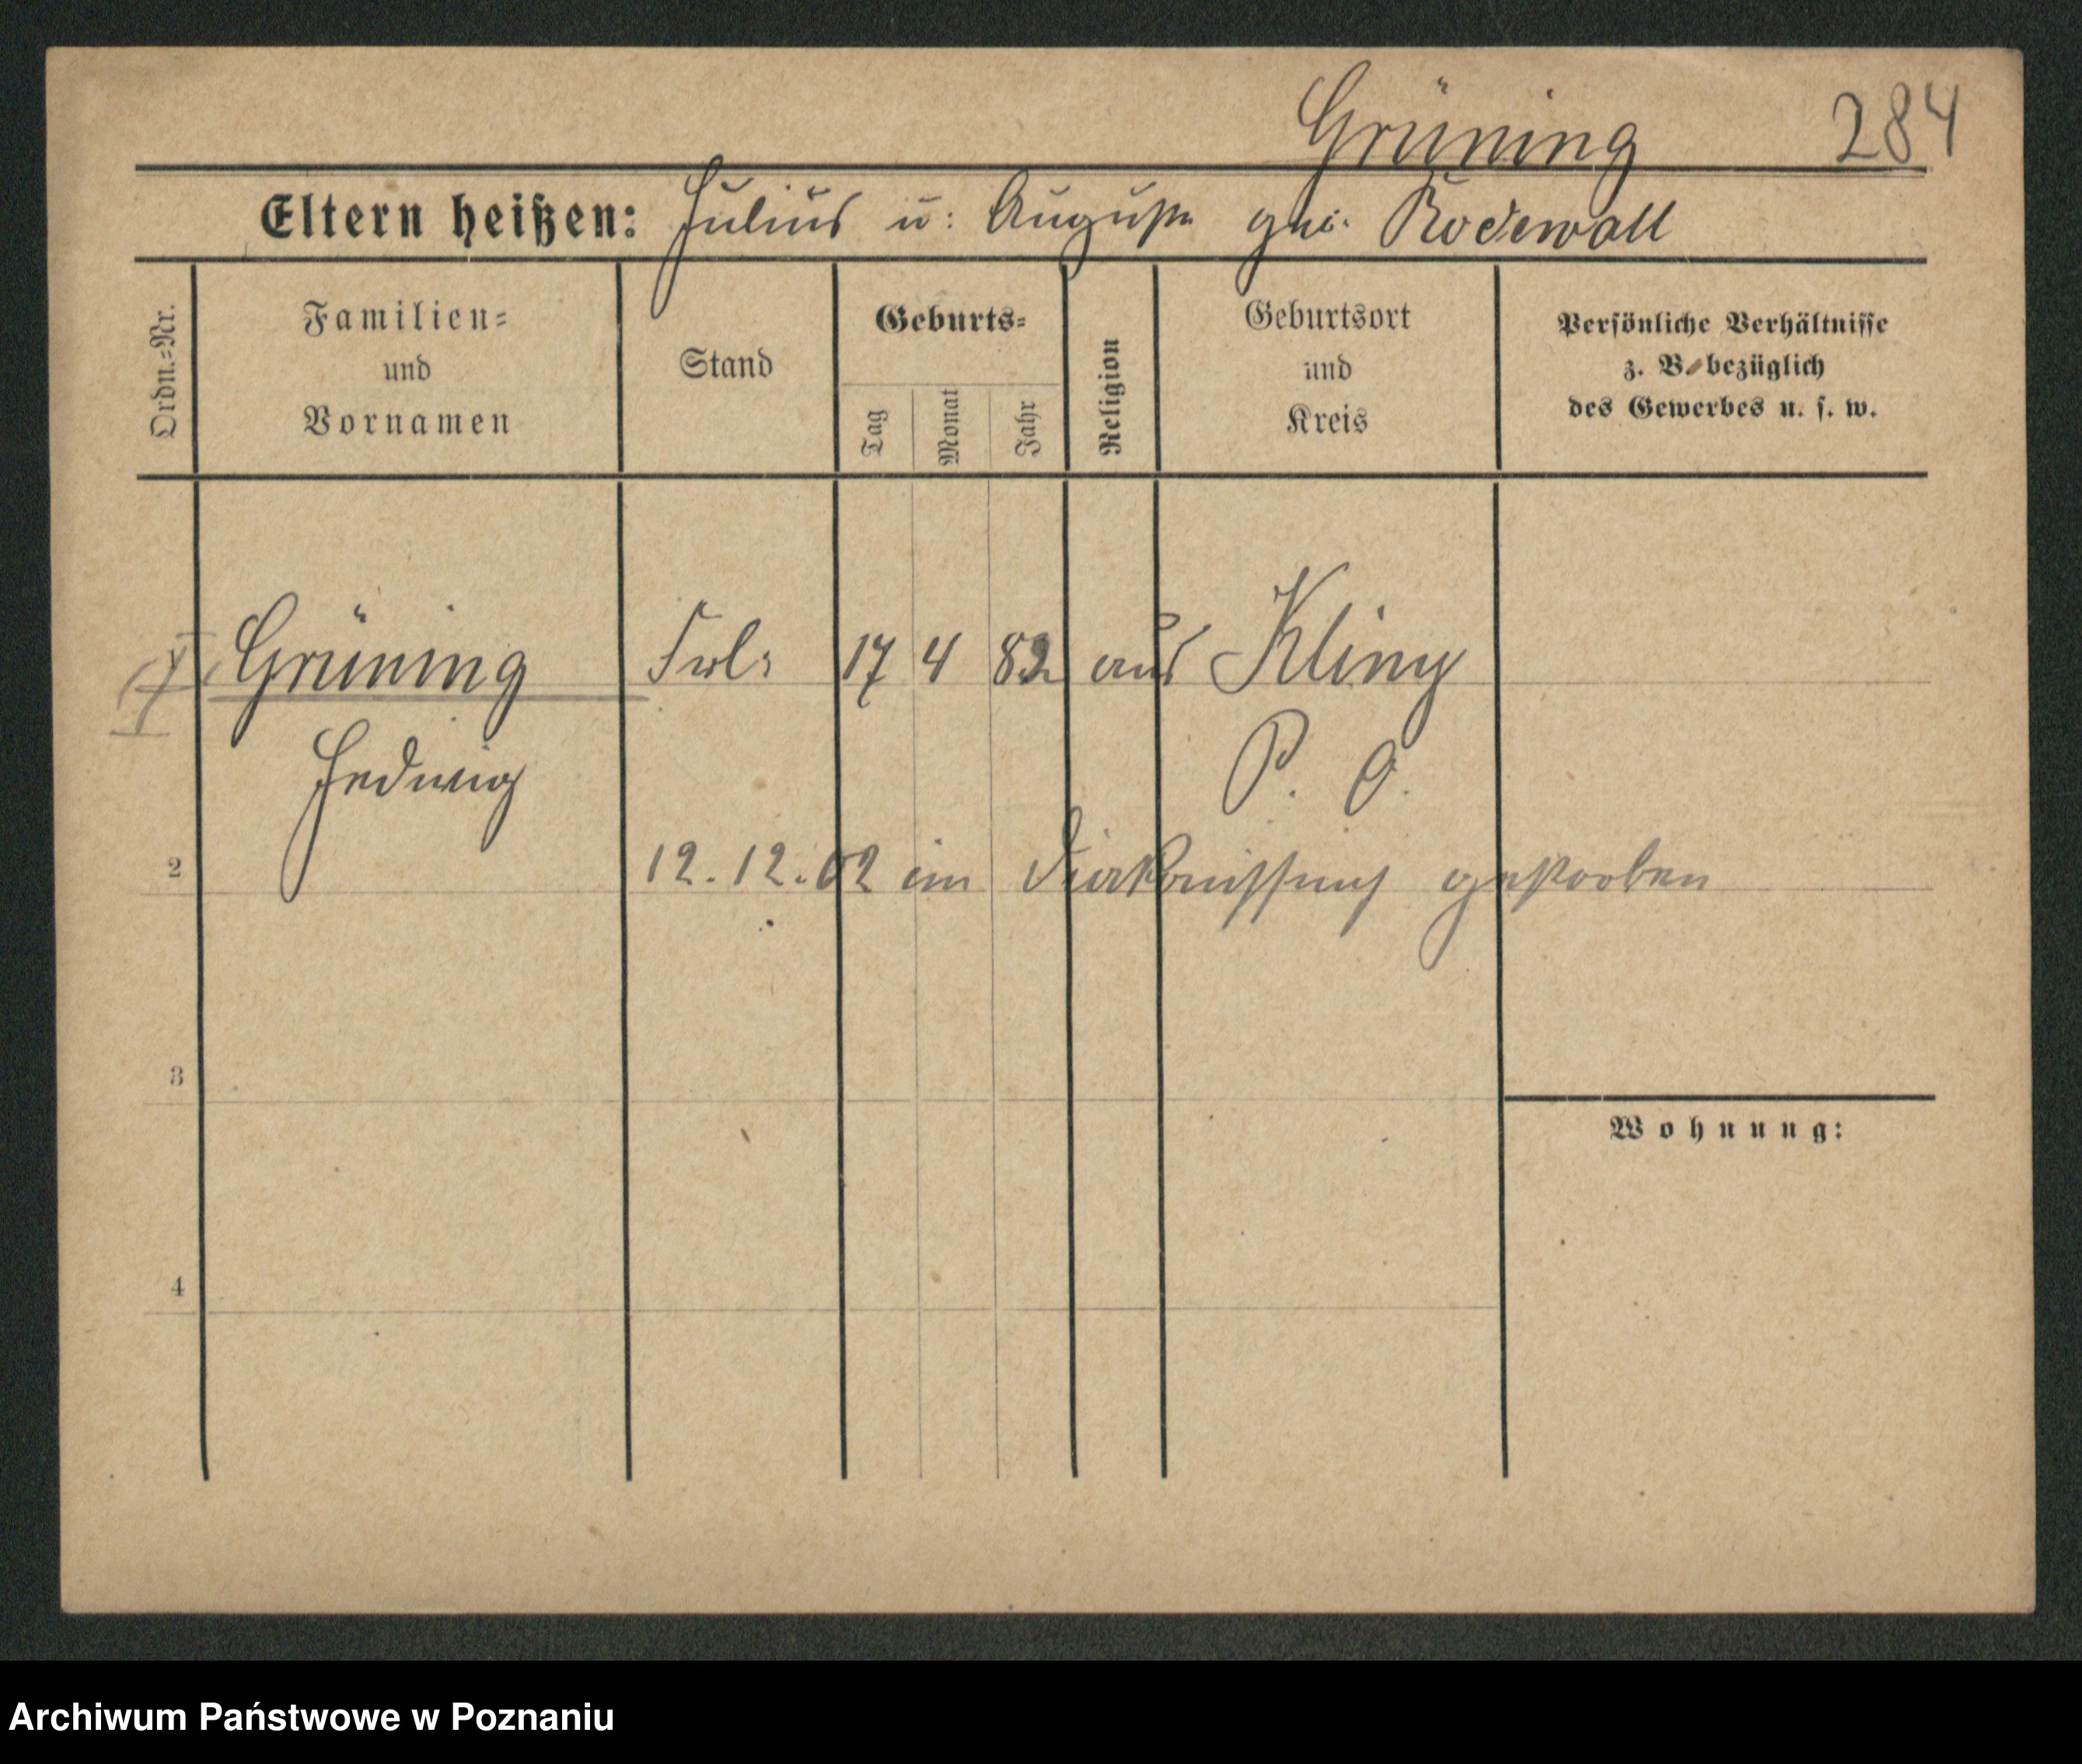 Grüning 284
Eltern heißen: Julius u: Auguste geb. Rodewall
Ordn.=Nr.
Familien=
und
Vornamen
Stand
Geburts=
Tag
Monat
Jahr
Religion
Geburtsort
und
Kreis
Persönliche Verhältnisse
z. B. bezüglich
des Gewerbes u. s. w.
Grüning Frl. 17 4 82 aus Kliny
Hedwig P. O.
2 12.12.02 im gestorben
3
Wohnung:
4
Archiwum Państwowe w Poznaniu